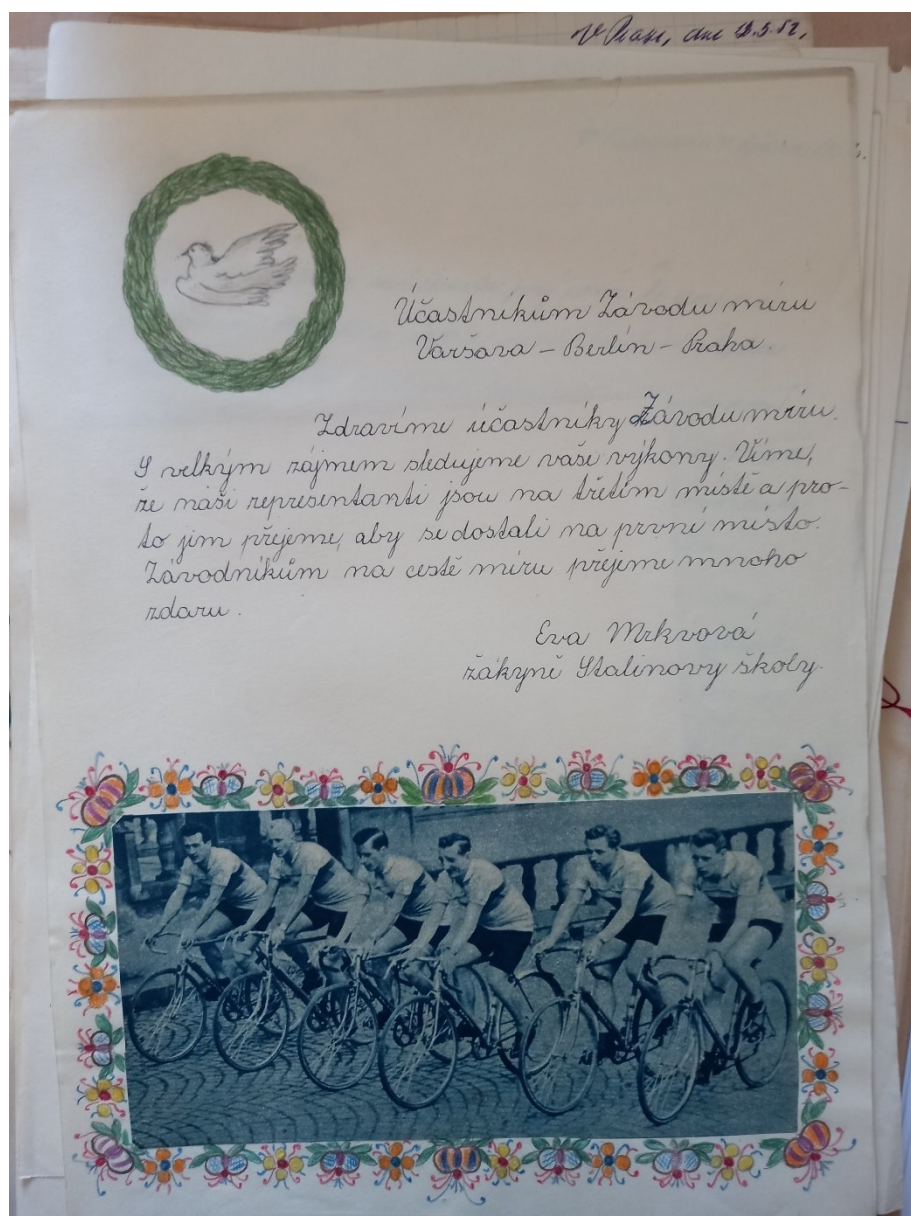 V Praze, dne 12.5.52,
Účastníkům Závodu míru
Varšava – Berlín – Praha.
Zdravíme účastníky Závodu míru.
S velkým zájmem sledujeme vaše výkony. Víme,
že náši representanti jsou na třetím místě a pro-
to jim přejeme, aby se dostali na první místo.
Závodníkům na cestě míru přejeme mnoho
zdaru.
Eva Mrkvová
žákyně Stalinovy školy.